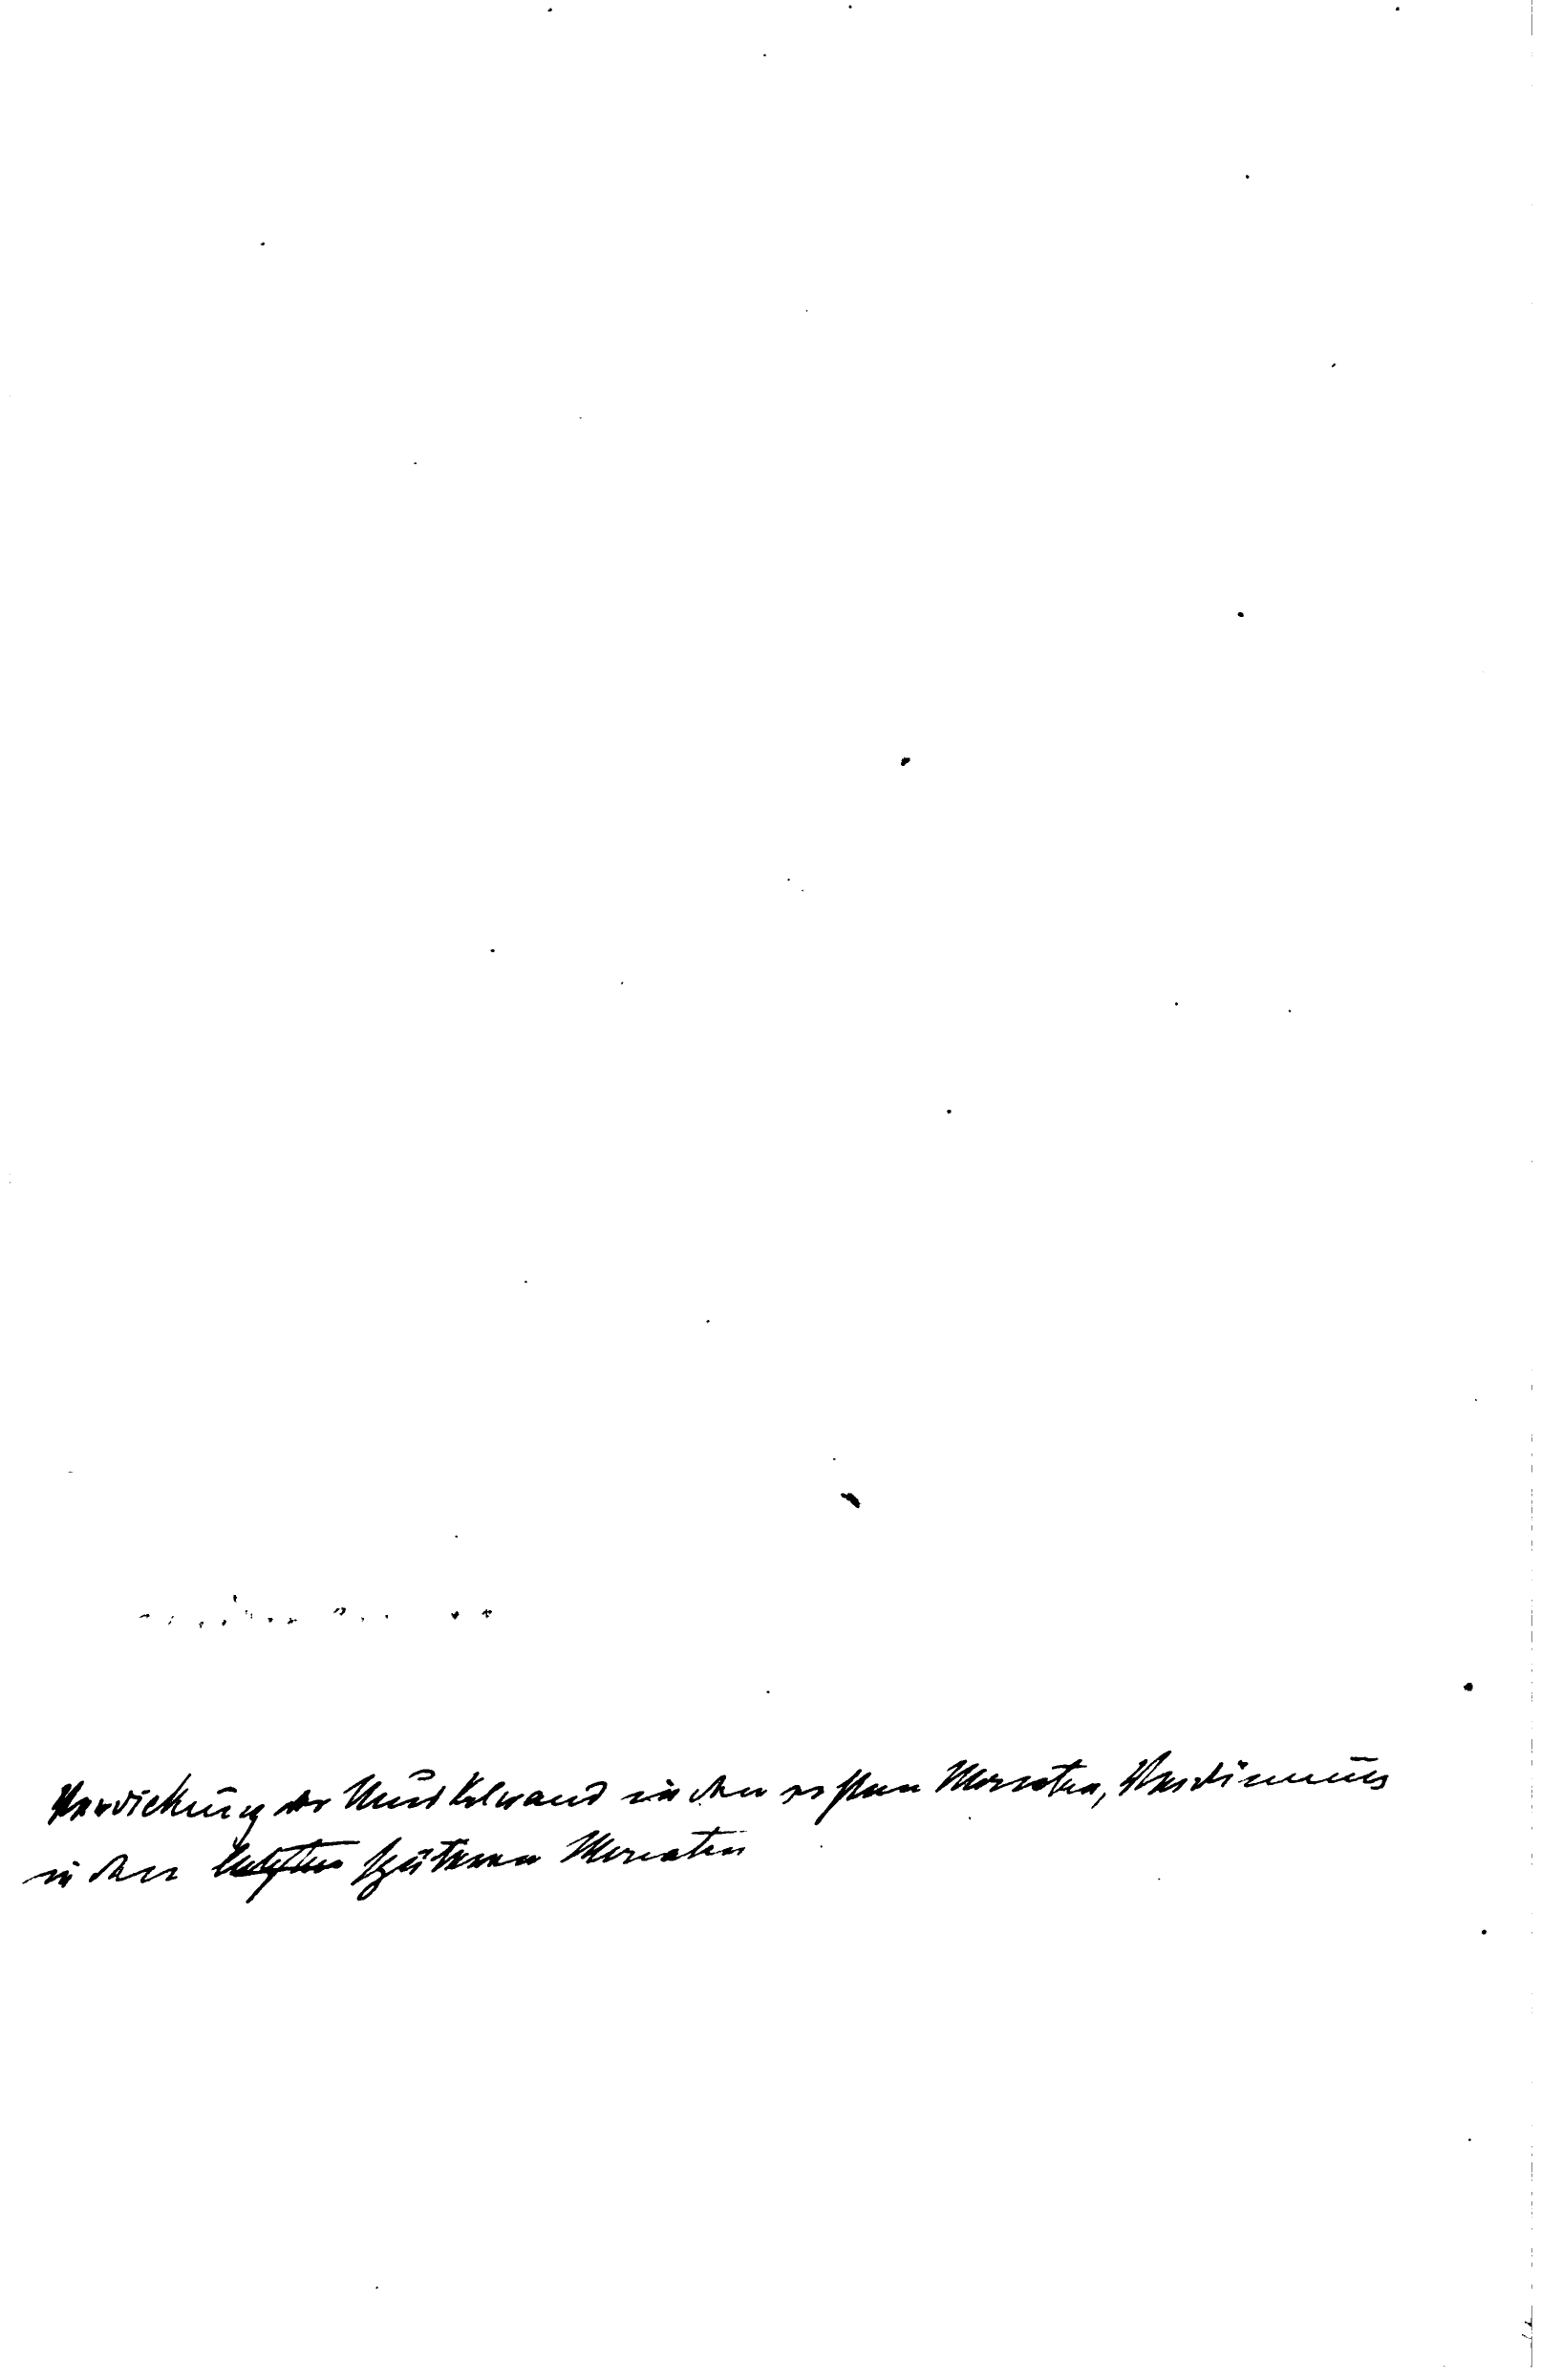 Verdickung der Muskelwand in den ersten Monaten, Verdünnung
in den letzten späteren Monaten